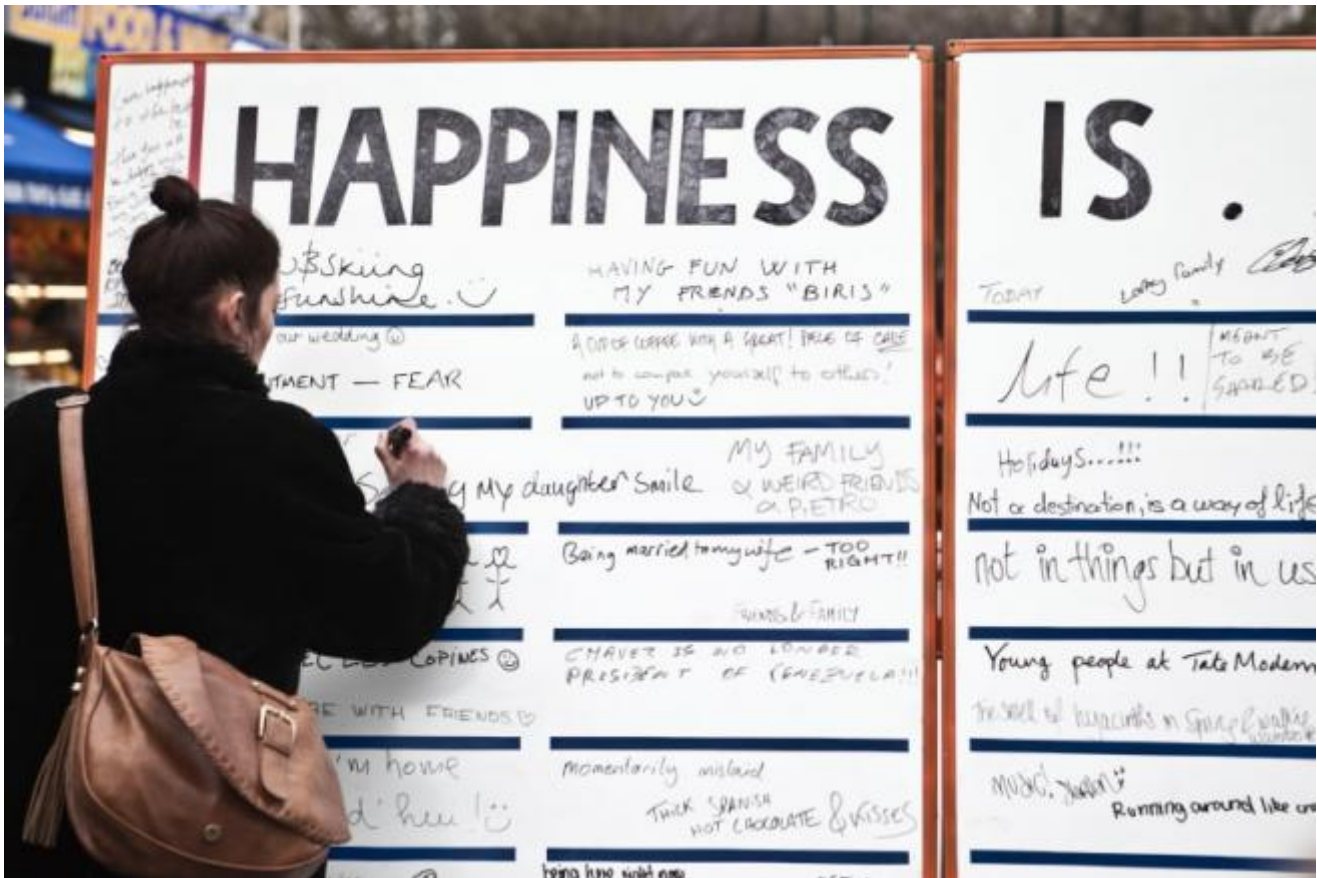 FOOD &
HAPPINESS IS .
Skiing
Sunshine.
our wedding
TMENT — FEAR
My daughter Smile
COPINES
BE WITH FRIENDS
'm home
HAVING FUN WITH
MY FRENDS "BIRIS"
A CUP OF COFFEE WITH A GREAT! PIECE OF CAKE
not to compare yourself to others!
UP TO YOU
MY FAMILY
& WEIRD FRIENDS
& PIETRO
Being married to my wife – TOO
RIGHT!!
FRIENDS & FAMILY
CHAVEZ IS NO LONGER
PRESIDENT OF VENEZUELA!!!
Momentarily mislaid
THICK SPANISH
HOT CHOCOLATE & KISSES
being here right now
TODAY
family
life!!
MEANT
TO BE
SHARED!
Holidays...!!!
Not a destination, is a way of life
not in things but in us
Young people at Tate Modern
the smell of hyacinths in Spring &
Music!
Running around like